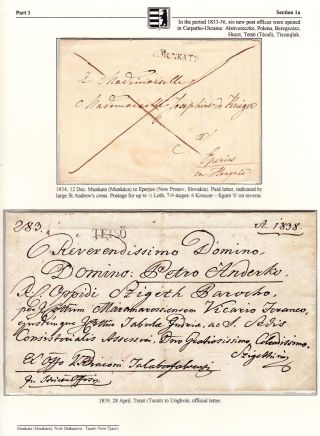 Part 1
Section 1a
In the period 1833-36, six new post offices were opened
in Carpatho-Ukraine: Alsóvereczke, Polena, Beregszász,
Huszt, Tetsö (Técsö), Tiszaujlak.
MUNKATS
a Mademoiselle
Mademoiselle Josephine de Krieger
à
Eperies
en Hongrie
1834, 12 Dec. Munkats (Munkács) to Eperjes (Now Presov, Slovakia). Paid letter, indicated by
large St Andrew's cross. Postage for up to ½ Loth, 7-9 stages: 6 Kreuzer – figure '6' on reverse.
283.
A. 1838.
TETSÖ
Reverendissimo Domino,
Domino Petro Anderko,
Oppidi Szigeth Parocho,
Maramarossiensem Vicario Foraneo,
Tabulae
ac S. Sedis
Consistorialis Assessori, Dno Gratiosissimo, Colendissimo
Szigethini
Ex Offo
1839, 28 April. Tetsö (Técsö) to Unghvár, official letter.
Munkats (Munkács); Now Mukacevo. Tecsö: Now Tjaciv